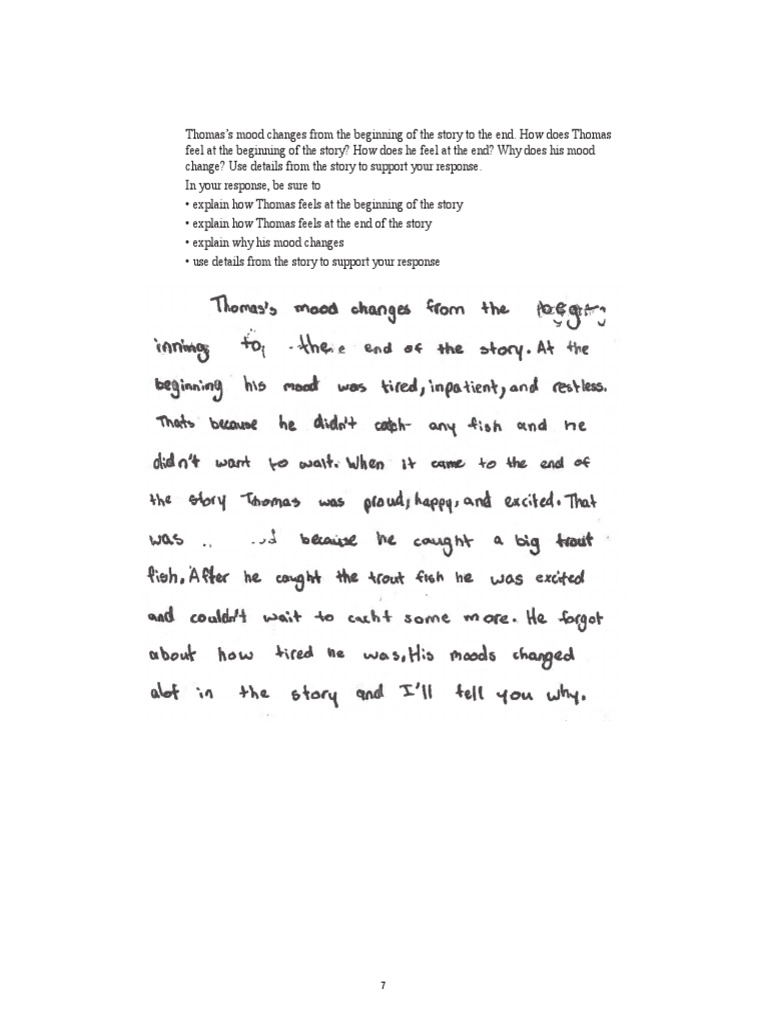 Thomas's mood changes from the beginning of the story to the end. How does Thomas
feel at the beginning of the story? How does he feel at the end? Why does his mood
change? Use details from the story to support your response.
In your response, be sure to
• explain how Thomas feels at the beginning of the story
• explain how Thomas feels at the end of the story
• explain why his mood changes
• use details from the story to support your response
Thomas's mood changes from the
inning to the end of the story. At the
beginning his mood was tired, inpatient, and restless.
Thats because he didn't catch any fish and he
didn't want to wait. When it came to the end of
the story Thomas was proud, happy, and excited. That
was because he caught a big trout
fish. After he caught the trout fish he was excited
and couldn't wait to cacht some more. He forgot
about how tired he was. His moods changed
alot in the story and I'll tell you why.
7